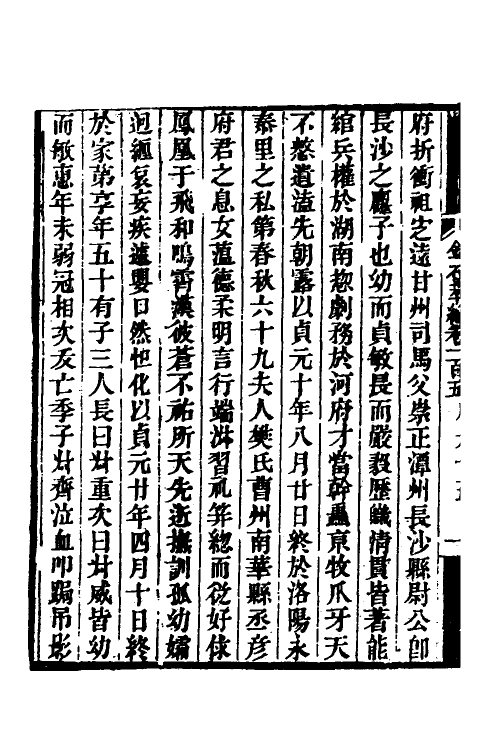 府折衝祖定遠甘州司馬父崇正潭州長沙縣尉公卽
長沙之𢠢子也幼而貞敏長而嚴毅歷職情貫皆著能
綰兵權於湖南惣劇務於河府才當幹蠱京牧爪牙天
不憗遺溘先朝露以貞元十年八月廿日終於洛陽永
泰里之私第春秋六十九夫人樊氏曹州南華縣丞彦
府君之息女蕰德柔明言行端淋習礼笄緫而從好俅
鳳凰于飛和鳴霄漢彼蒼不祐所天先逝撫訓孤幼孀
迴纏哀妄疾遽嬰日然怛化以貞元廿年四月十日終
於家第享年五十有子三人長曰卌重次曰卌威皆幼
而敏惠年未弱冠相次夭亡季子卌齊泣血叩蹋吊影
金石萃編卷一百五